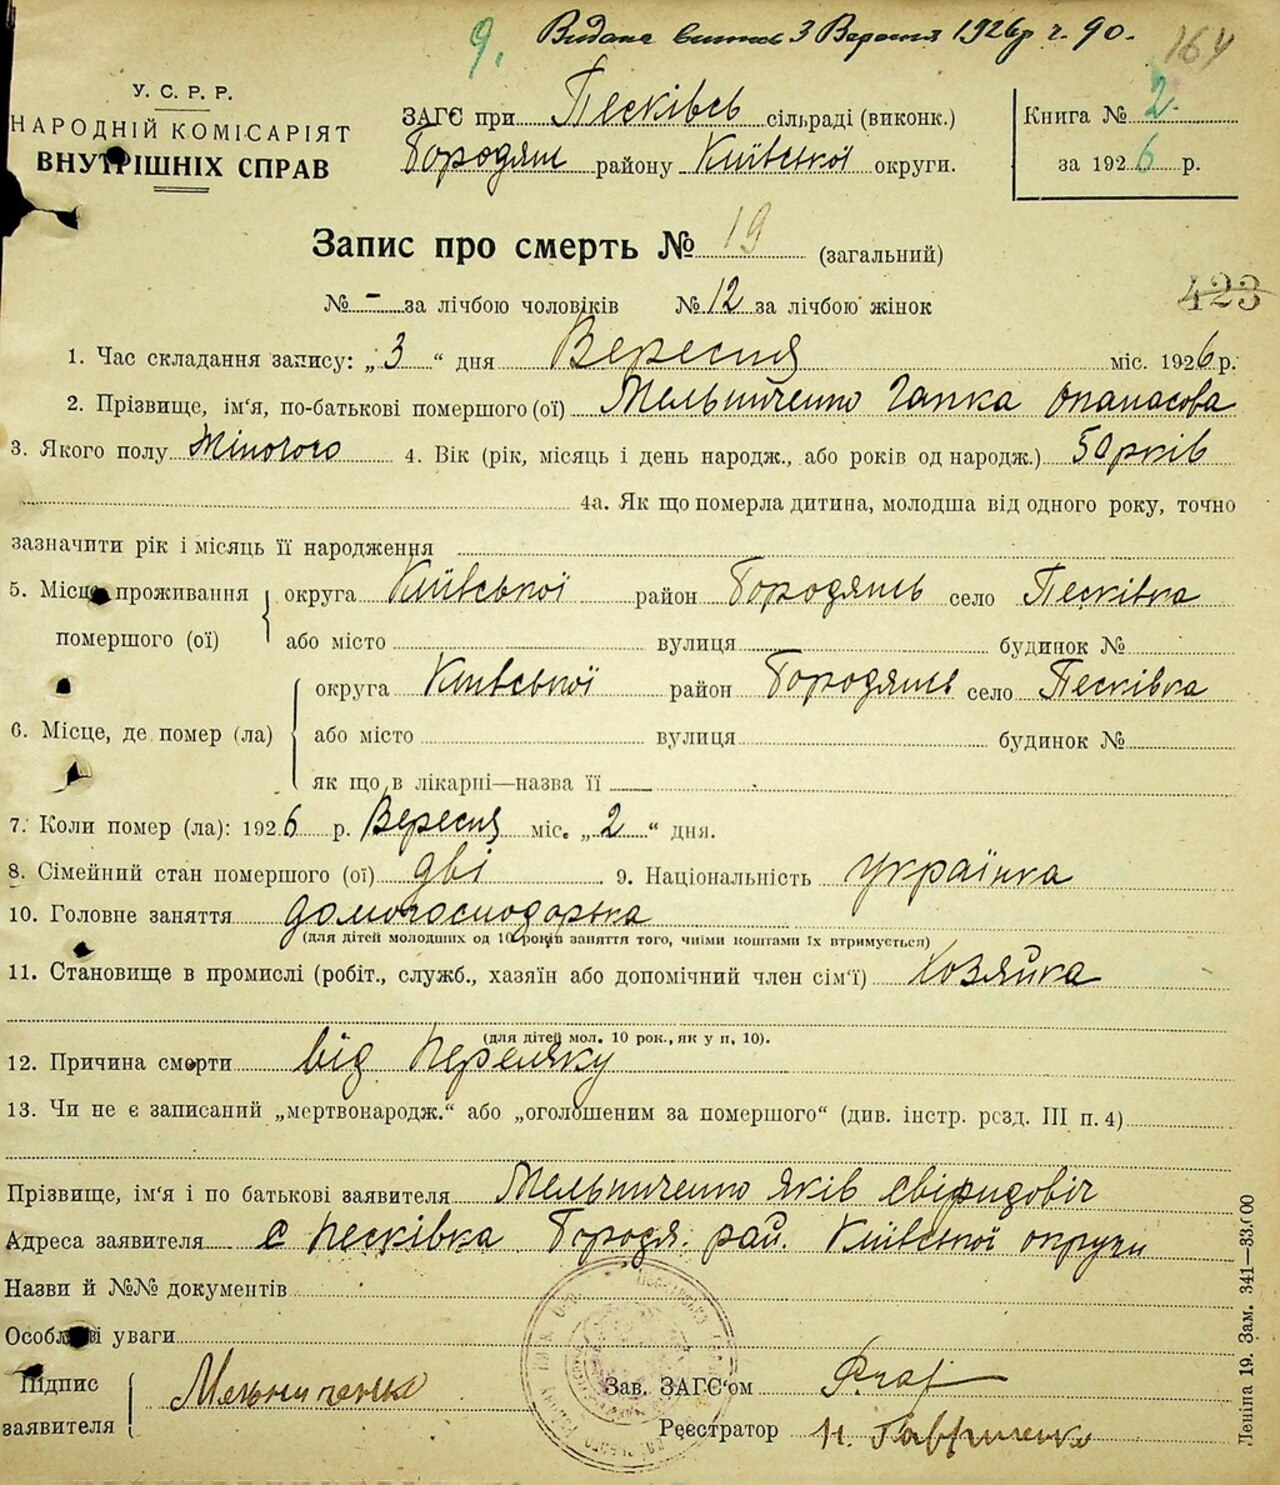 9. Видана витяг 3 Вересня 1926р ч. 90.
164
У. С. Р. Р.
НАРОДНІЙ КОМІСАРІЯТ
ВНУТРІШНІХ СПРАВ
ЗАГС при Песківсь сільраді (виконк.)
Бородянь району Київської округи.
Книга № 2
за 1926 р.
Запис про смерть № 19 (загальний)
№ - за лічбою чоловіків № 12 за лічбою жінок
423
1. Час складання запису: „3“ дня Вересня міс. 1926 р.
2. Прізвище, ім‘я, по-батькові помершого (ої) Мельниченко Гапка Опанасова
3. Якого полу Жіночого 4. Вік (рік, місяць і день народж., або років од народж.) 50 рків
4а. Як що померла дитина, молодша від одного року, точно
зазначити рік і місяць її народження
5. Місце проживання помершого (ої) округа Київської район Бородянсь село Песківка
або місто вулиця будинок №
6. Місце, де помер (ла) округа Київської район Бородянсь село Песківка
або місто вулиця будинок №
як що в лікарні—назва її
7. Коли помер (ла): 1926 р. Вересня міс. „2“ дня.
8. Сімейний стан помершого (ої) дві 9. Національність українка
10. Головне заняття домогосподорька
(для дітей молодших од 10 років заняття того, чиїми коштами їх втримується)
11. Становище в промислі (робіт., служб., хазяїн або допомічний член сім‘ї) Хозяйка
(для дітей мол. 10 рок., як у п. 10).
12. Причина смерти від переляку
13. Чи не є записаний „мертвонародж.“ або „оголошеним за помершого“ (див. інстр. розд. III п. 4)
Прізвище, ім‘я і по батькові заявителя Мельниченко Яків Свіридовіч
Адреса заявителя с Песківка Бородя. рай. Київської округи
Назви й №№ документів
Особливі уваги
Підпис заявителя Мельниченко
Зав. ЗАГС‘ом
Реєстратор Н. Гавриленко
Леніна 19. Зам. 341—33.000